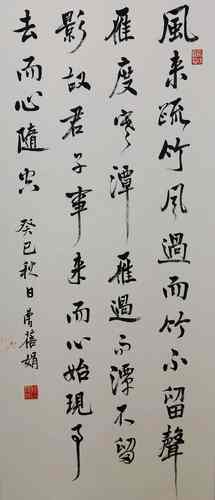 風來疏竹風過而竹不留聲
雁度寒潭雁過而潭不留
影故君子事來而心始現事
去而心隨空
癸巳秋日曹蓓娟